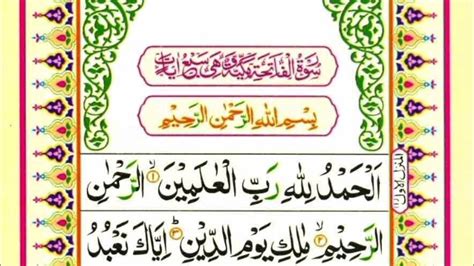 سُوْرَةُ الْفَاتِحَةِ مَكِّيَّةٌ وَّهِيَ سَبْعُ اٰيَاتٍ
بِسْمِ اللّٰهِ الرَّحْمٰنِ الرَّحِيْمِ
اَلْحَمْدُ لِلّٰهِ رَبِّ الْعٰلَمِيْنَ ۙ﴿۱﴾ الرَّحْمٰنِ
الرَّحِيْمِ ۙ﴿۲﴾ مٰلِكِ يَوْمِ الدِّيْنِ ؕ﴿۳﴾ اِيَّاكَ نَعْبُدُ
المنزل الاول